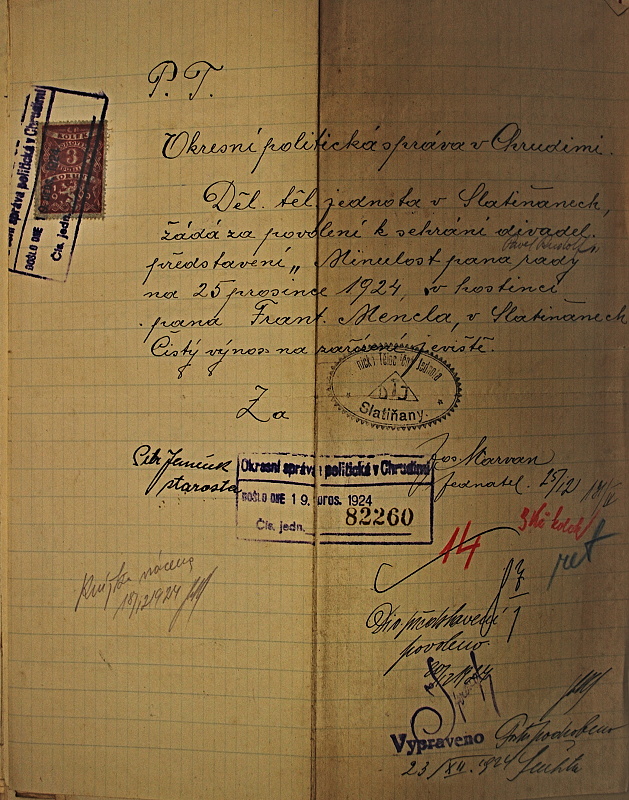 P. T.
Okresní politická správa v Chrudimi.
Děl. těl. jednota v Slatiňanech,
žádá za povolení k sehrání divadel.
představení „Minulost pana rady
na 25 prosince 1924, v hostinci
pana Frant. Mencla, v Slatiňanech
Čistý výnos na zařízení jeviště.
KOLEK
3
správa politická v Chrudimi
DOŠLO DNE
Čís. jedn.
nická Tělocvičná Jednota
DTJ
Slatiňany.
Za
Petr
starosta
Jos Marvan
jednatel.
Okresní správa politická v Chrudimi
DOŠLO DNE 19. pros. 1924
Čís. jedn. 82260
3 Kč kolek
14
ret
18/12 1924
Div. představení
povoleno.
Vypraveno
23/XII. 1924